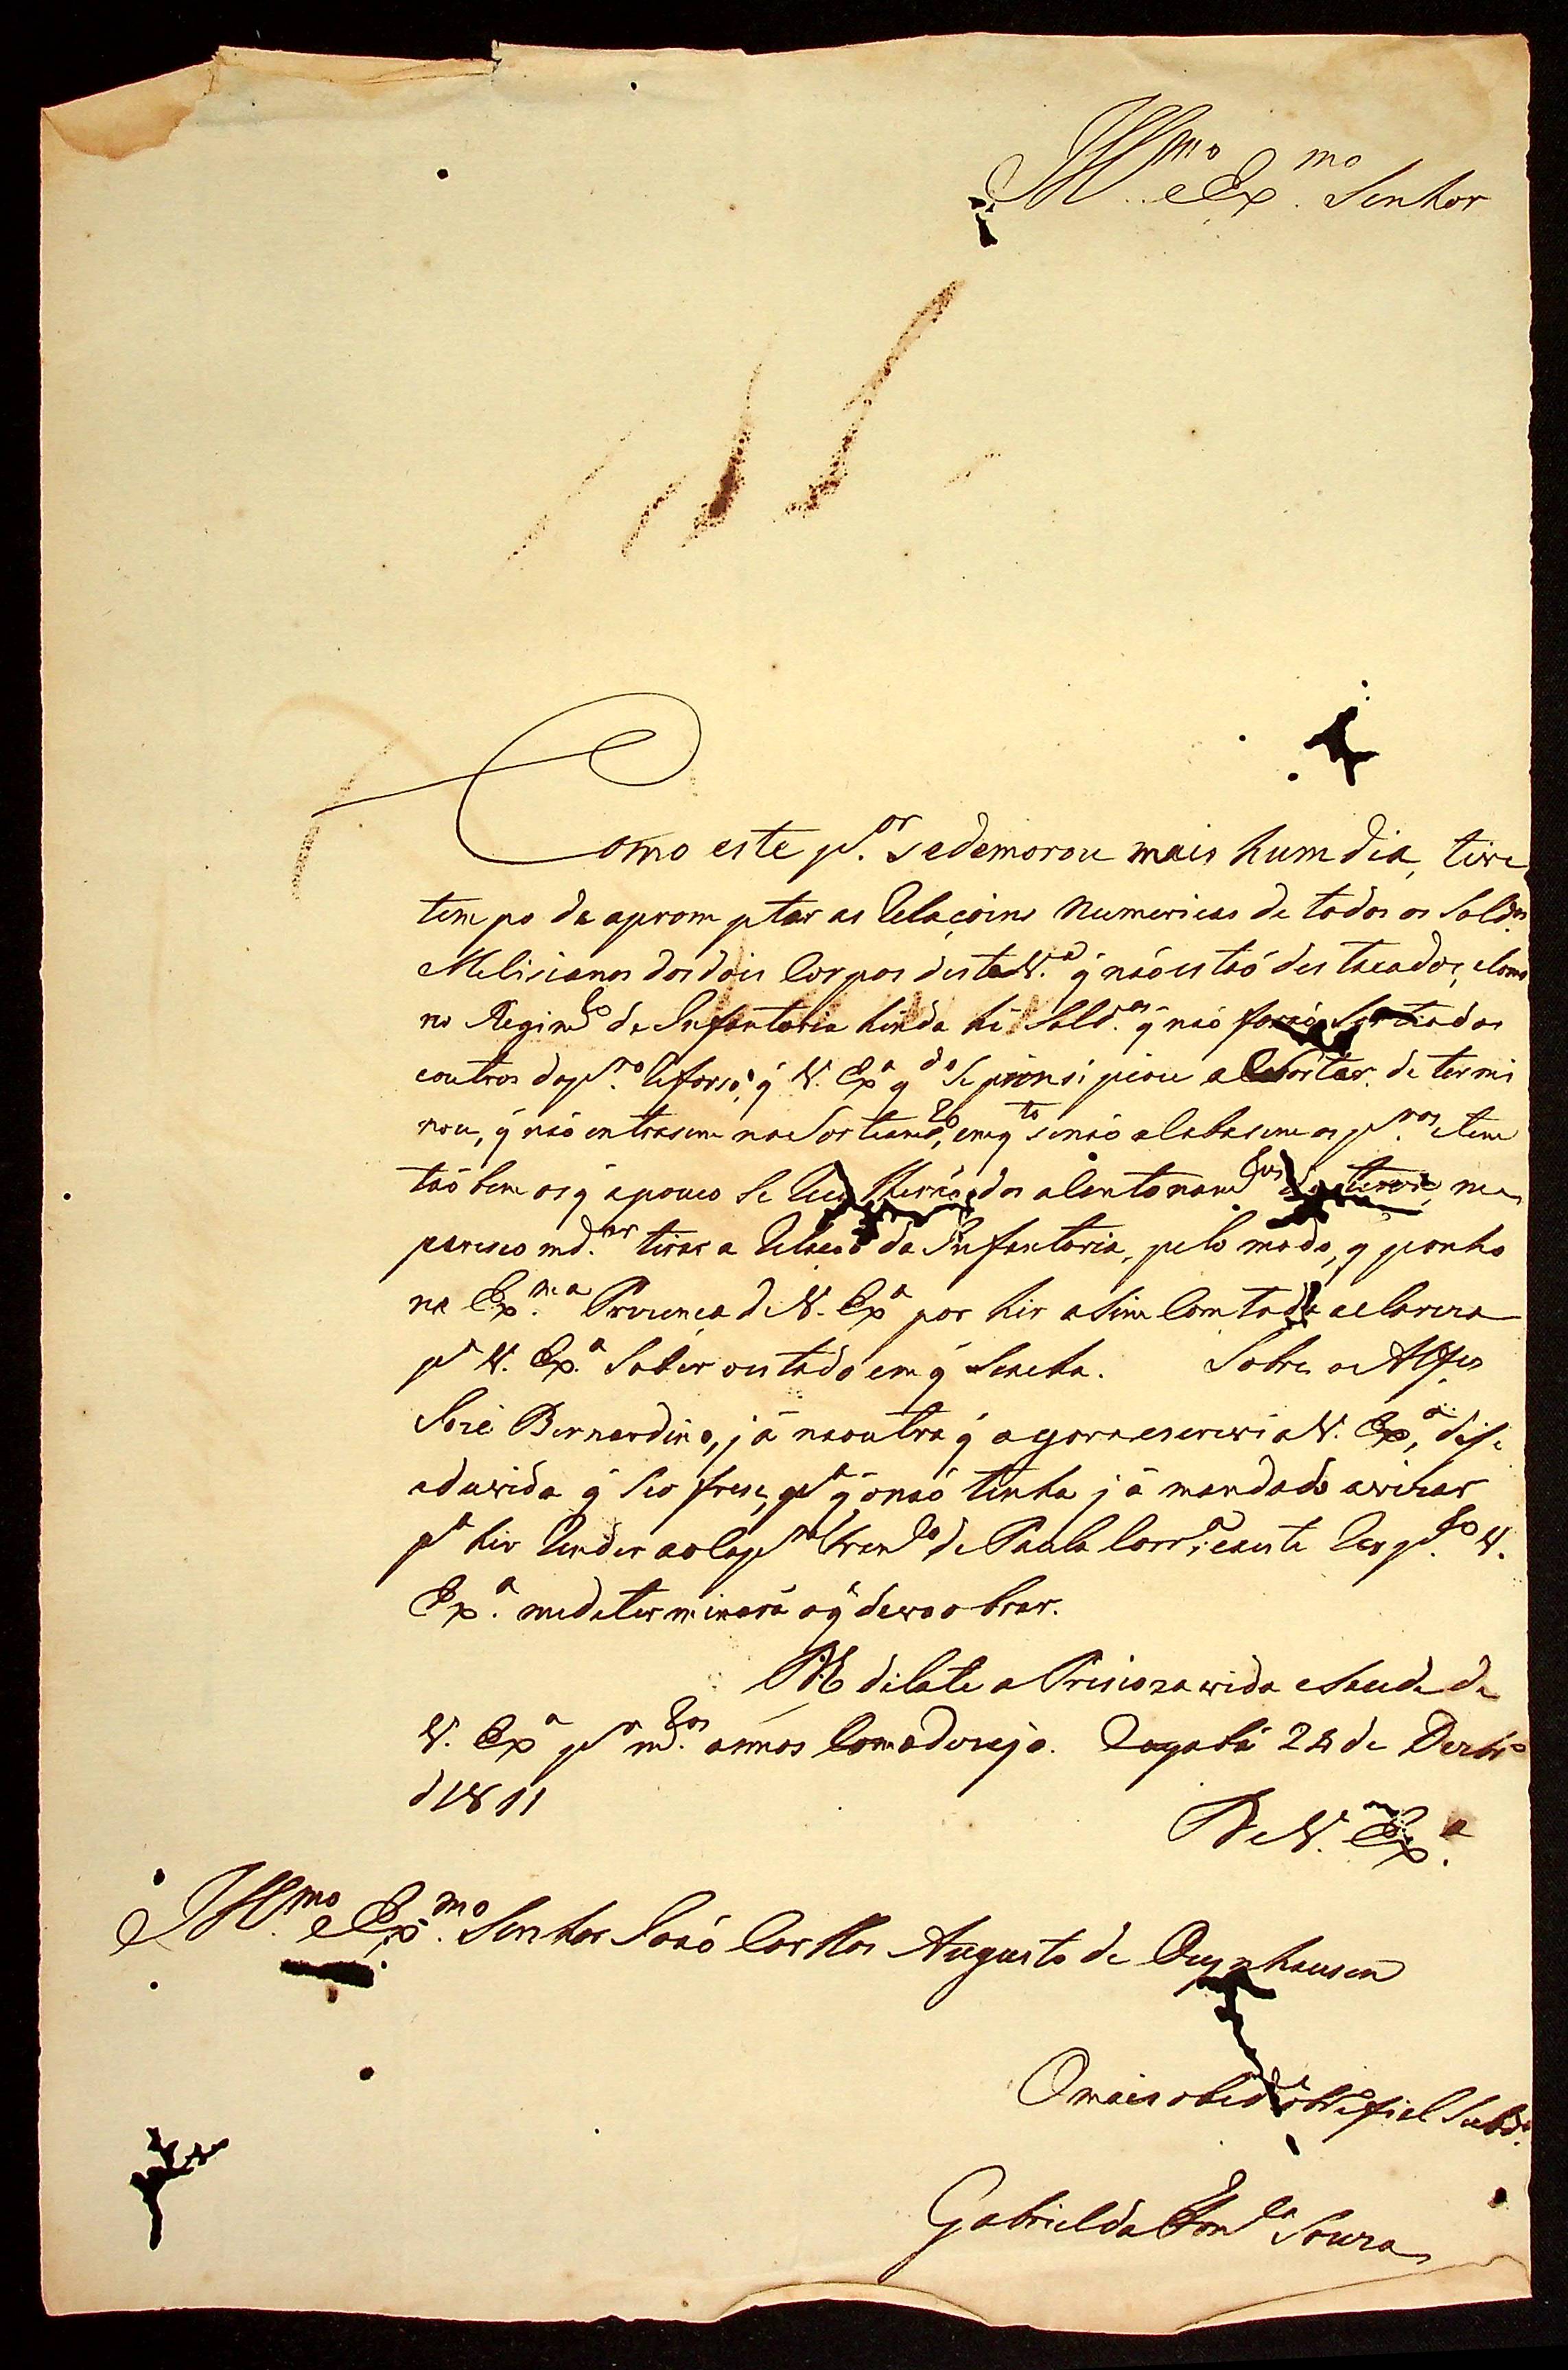 Illmo. e Exmo. Senhor
Como este p.or sedemorou mais hum dia, tive
tempo de aprom ptar as Relaçoins Numericas de todos os Sold.os
Melicianos dos dois Corpos desta V.a q̃ náo estaó destacados, eComo
no Regim.to de Infantaria hinda há Sold.os q̃ náo foraó Sortiados
eoutros do p.ro Reforso, q̃ V. Ex.a q.do Se prinsi piou a Sortear. de termi
nou, q̃ náo entrasem no Sorteam.to, emq.to senaó acabasem os p.ros etem
taó bem os q̃ apouco Se dos alentonam.tos me
pareseo md.ar tirar a Relaçaó da Infantaria, pelo modo, q̃ ponho
na Ex.ma Prezença d V. Ex.a por hir aSim Com toda aclareza
p.a V. Ex.a Saber oestado em q̃ Seacha. Sobre o Alfes
José Bernardino, já naoutra q̃ agora escrevi a V. Ex.a, dise
aduvida q̃ Seo frese, p.a q̃ onaó tenha já mandado avizar
p.a hir Render ao Cap.m Fran.co de Paula Corr.a, eaeste Resp.to V.
Ex.a medeterminará oq̃ devo obrar.
DE dilate a Presioza vida eSaude de
V. Ex.a p.r m.tos annos Como dezejo. Cuyabá 28 de Dezbr.o
d 1811
De V. Ex.a
Illmo. e Exmo. Senhor Joaó Carllos Augusto de Oeynhausen
O mais obed.e efiel Subd.o
Gabriel da Fon.ca Souza